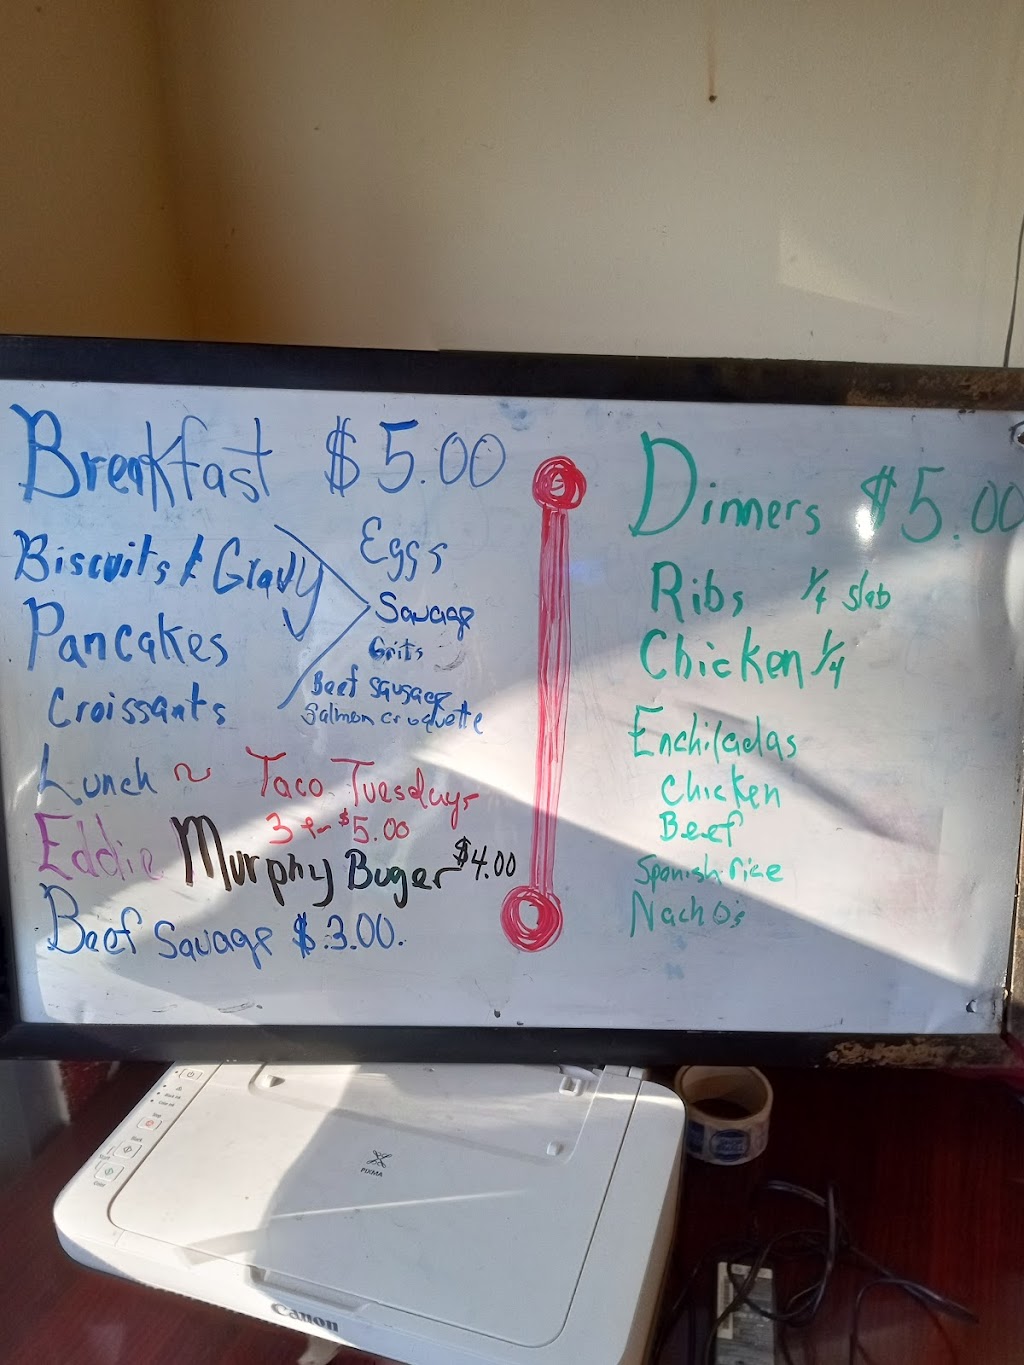 Breakfast $5.00
Biscuits & Gravy
Pancakes
Croissants
Eggs
Sauage
Grits
Beef sausage
Salmon croquette
Lunch ~ Taco Tuesdays
3 for $5.00
Eddie Murphy Buger $4.00
Beef Sauage $3.00.
Dinners $5.00
Ribs 1/4 slab
Chicken 1/4
Enchiladas
Chicken
Beef
Spanish rice
Nacho's
PIXMA
Canon